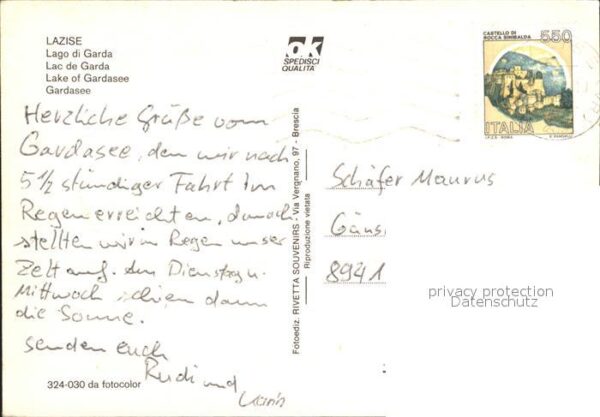 LAZISE
Lago di Garda
Lac de Garda
Lake of Gardasee
Gardasee
Herzliche Grüße vom
Gardasee, den wir nach
5 1/2 stündiger Fahrt im
Regen erreichten, danach
stellten wir im Regen unser
Zelt auf. Am Dienstag u.
Mittwoch schien dann
die Sonne.
senden euch
Rudi und
324-030 da fotocolor
ok
SPEDISCI
QUALITA'
Fotoediz. RIVETTA SOUVENIRS - Via Vergnano, 97 - Brescia
Riproduzione vietata
CASTELLO DI
ROCCA SINIBALDA
550
ITALIA
I.P.Z.S. ROMA
Schäfer Maurus
Gäns
8941
privacy protection
Datenschutz